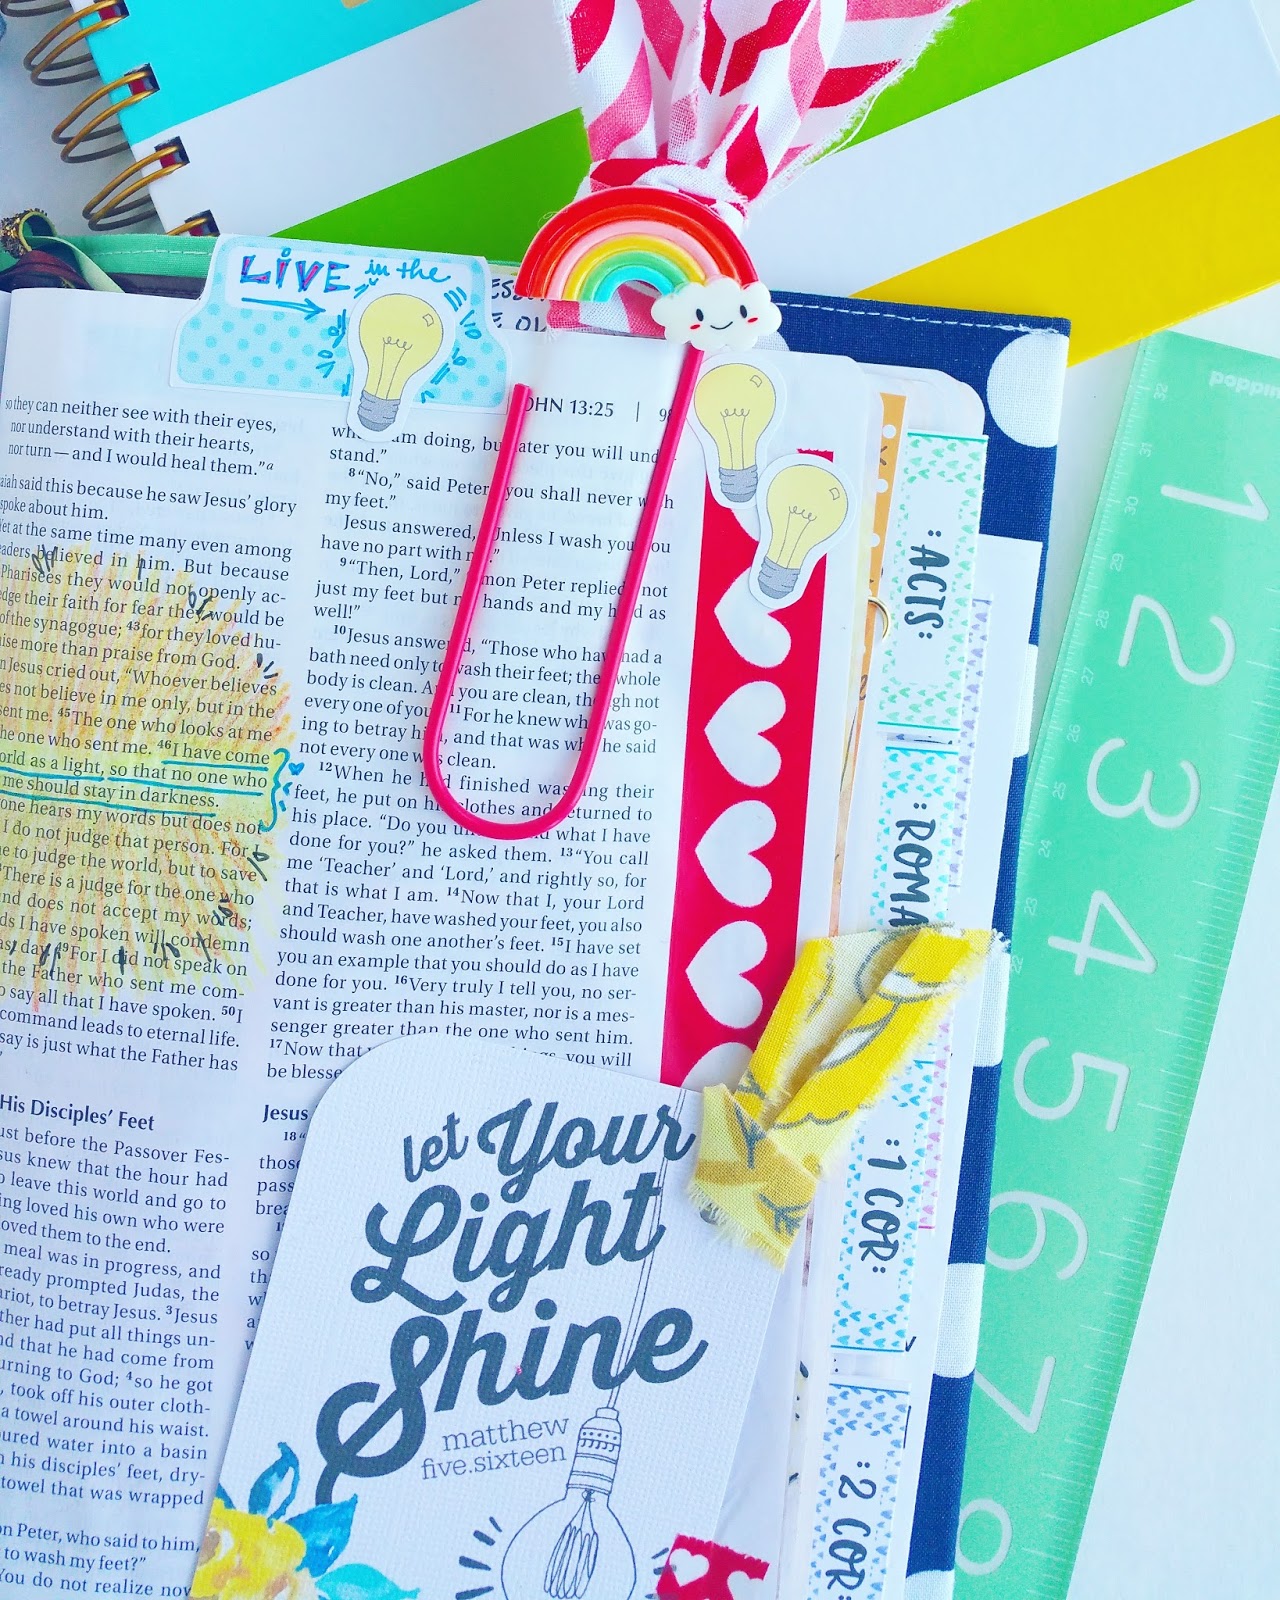 LIVE in the
OHN 13:25 |
so they can neither see with their eyes,
nor understand with their hearts,
nor turn—and I would heal them.”a
said this because he saw Jesus’ glory
spoke about him.
at the same time many even among
believed in him. But because
Pharisees they would not openly ac-
their faith for fear they would be
of the synagogue; 43for they loved hu-
more than praise from God.
Jesus cried out, “Whoever believes
not believe in me only, but in the
sent me. 45The one who looks at me
the one who sent me. 46I have come
as a light, so that no one who
me should stay in darkness.
hears my words but does not
I do not judge that person. For
to judge the world, but to save
There is a judge for the one who
and does not accept my words;
I have spoken will condemn
day. 49For I did not speak on
the Father who sent me com-
say all that I have spoken. 50I
command leads to eternal life.
say is just what the Father has
His Disciples’ Feet
just before the Passover Fes-
knew that the hour had
leave this world and go to
loved his own who were
loved them to the end.
meal was in progress, and
prompted Judas, the
to betray Jesus. 3Jesus
had put all things un-
and that he had come from
to God; 4so he got
took off his outer cloth-
a towel around his waist.
water into a basin
his disciples’ feet, dry-
towel that was wrapped
Peter, who said to him,
to wash my feet?”
You do not realize now
am doing, but later you will
stand.”
8“No,” said Peter, you shall never
my feet.”
Jesus answered, Unless I wash you, you
have no part with
9“Then, Lord,” Simon Peter replied, not
just my feet but my hands and my head as
well!”
10Jesus answered, “Those who have had a
bath need only to wash their feet; their whole
body is clean. And you are clean, though not
every one of you.” 11For he knew who was go-
ing to betray him, and that was why he said
not every one was clean.
12When he had finished washing their
feet, he put on his clothes and returned to
his place. “Do you what I have
done for you?” he asked them. 13“You call
me ‘Teacher’ and ‘Lord,’ and rightly so, for
that is what I am. 14Now that I, your Lord
and Teacher, have washed your feet, you also
should wash one another’s feet. 15I have set
you an example that you should do as I have
done for you. 16Very truly I tell you, no ser-
vant is greater than his master, nor is a mes-
senger greater than the one who sent him.
17Now that you will
be
Jesus
18
those
let Your
Light
Shine
matthew
five.sixteen
:ACTS:
:ROMA
:1 COR:
:2 COR:
poppin
32
31
30
29
28
27
26
25
24
23
22
1
2
3
4
5
6
7
8